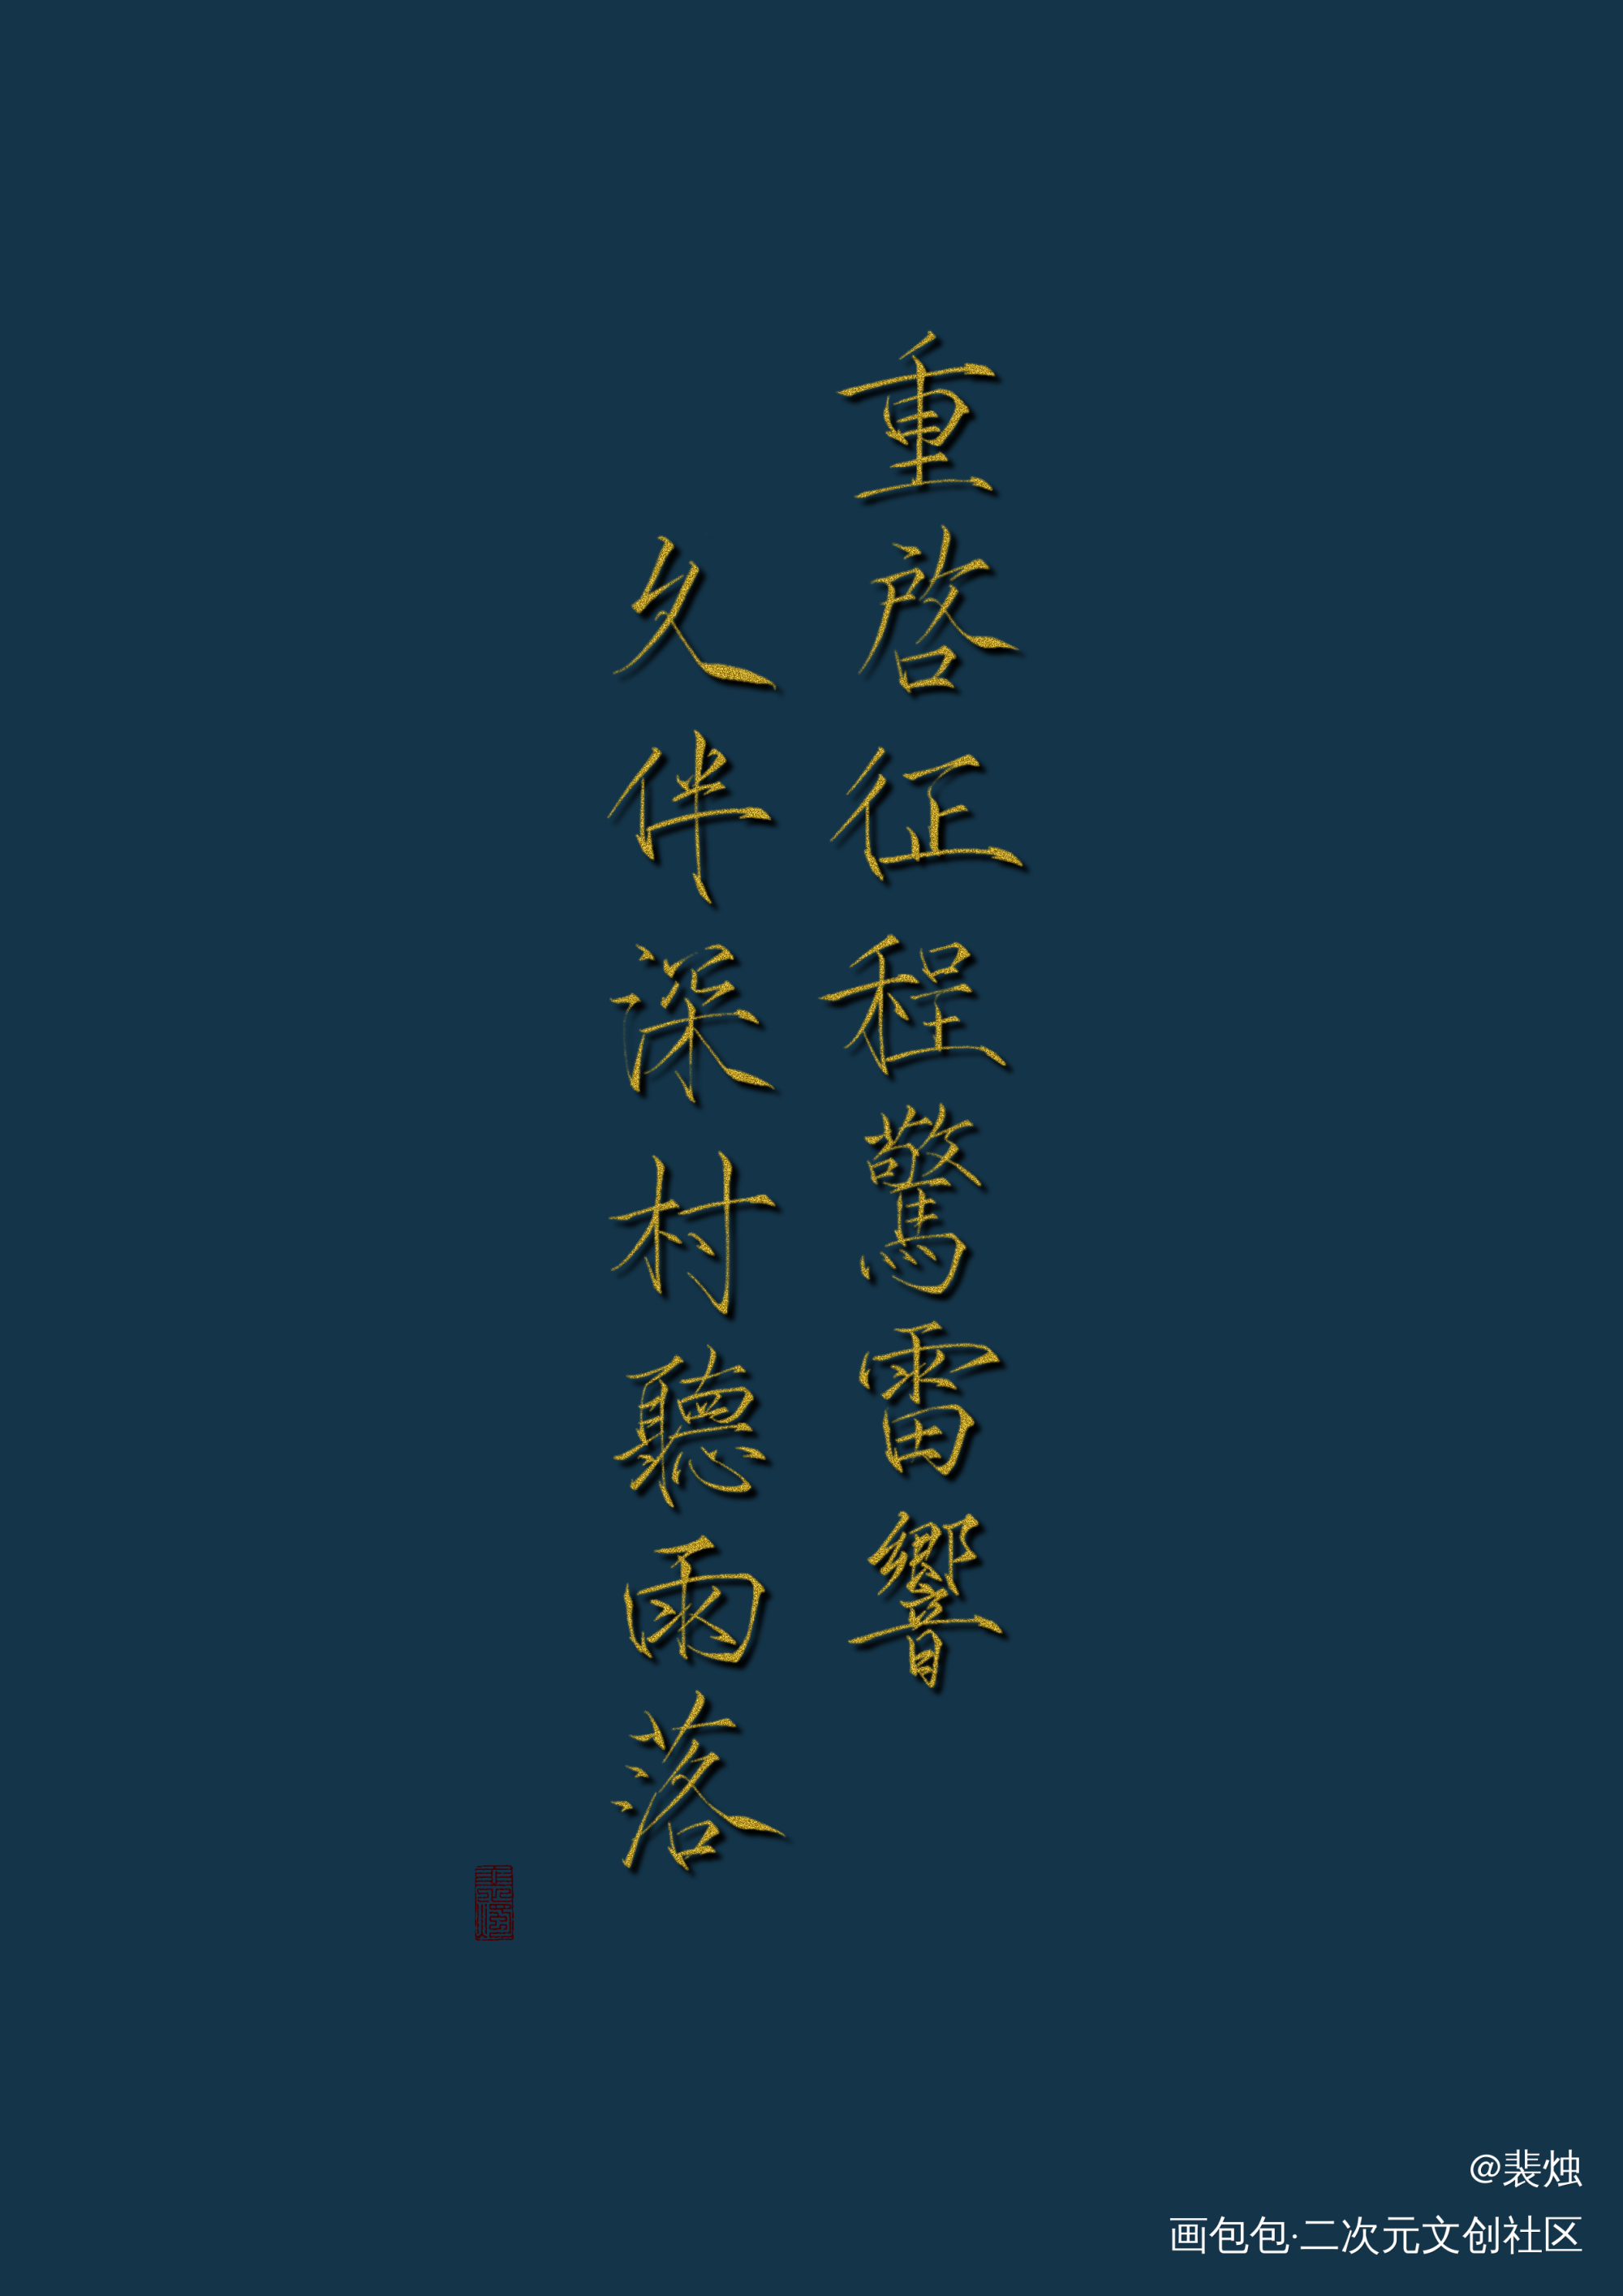 重啓征程驚雷響
久伴深村聽雨落
@裴烛
画包包·二次元文创社区